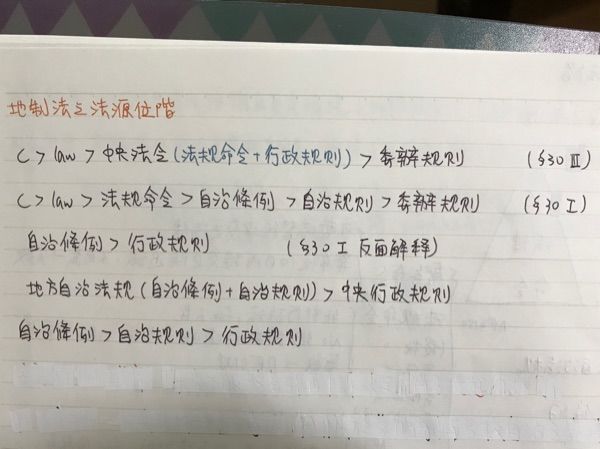 地制法之法源位階
C > law > 中央法令(法規命令+行政規則) > 委辦規則 (§30 III)
C > law > 法規命令 > 自治條例 > 自治規則 > 委辦規則 (§30 I)
自治條例 > 行政規則 (§30 I 反面解釋)
地方自治法規(自治條例+自治規則) > 中央行政規則
自治條例 > 自治規則 > 行政規則